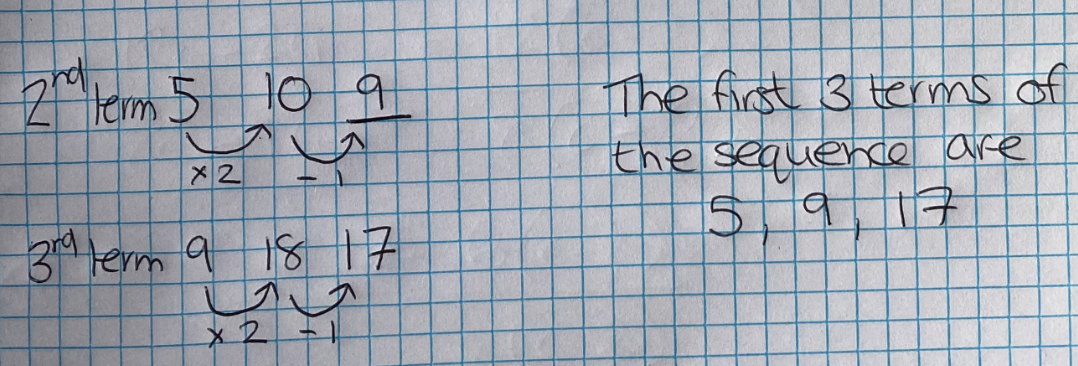 2nd term 5 10 9
×2 -1
3rd term 9 18 17
×2 -1
The first 3 terms of
the sequence are
5, 9, 17